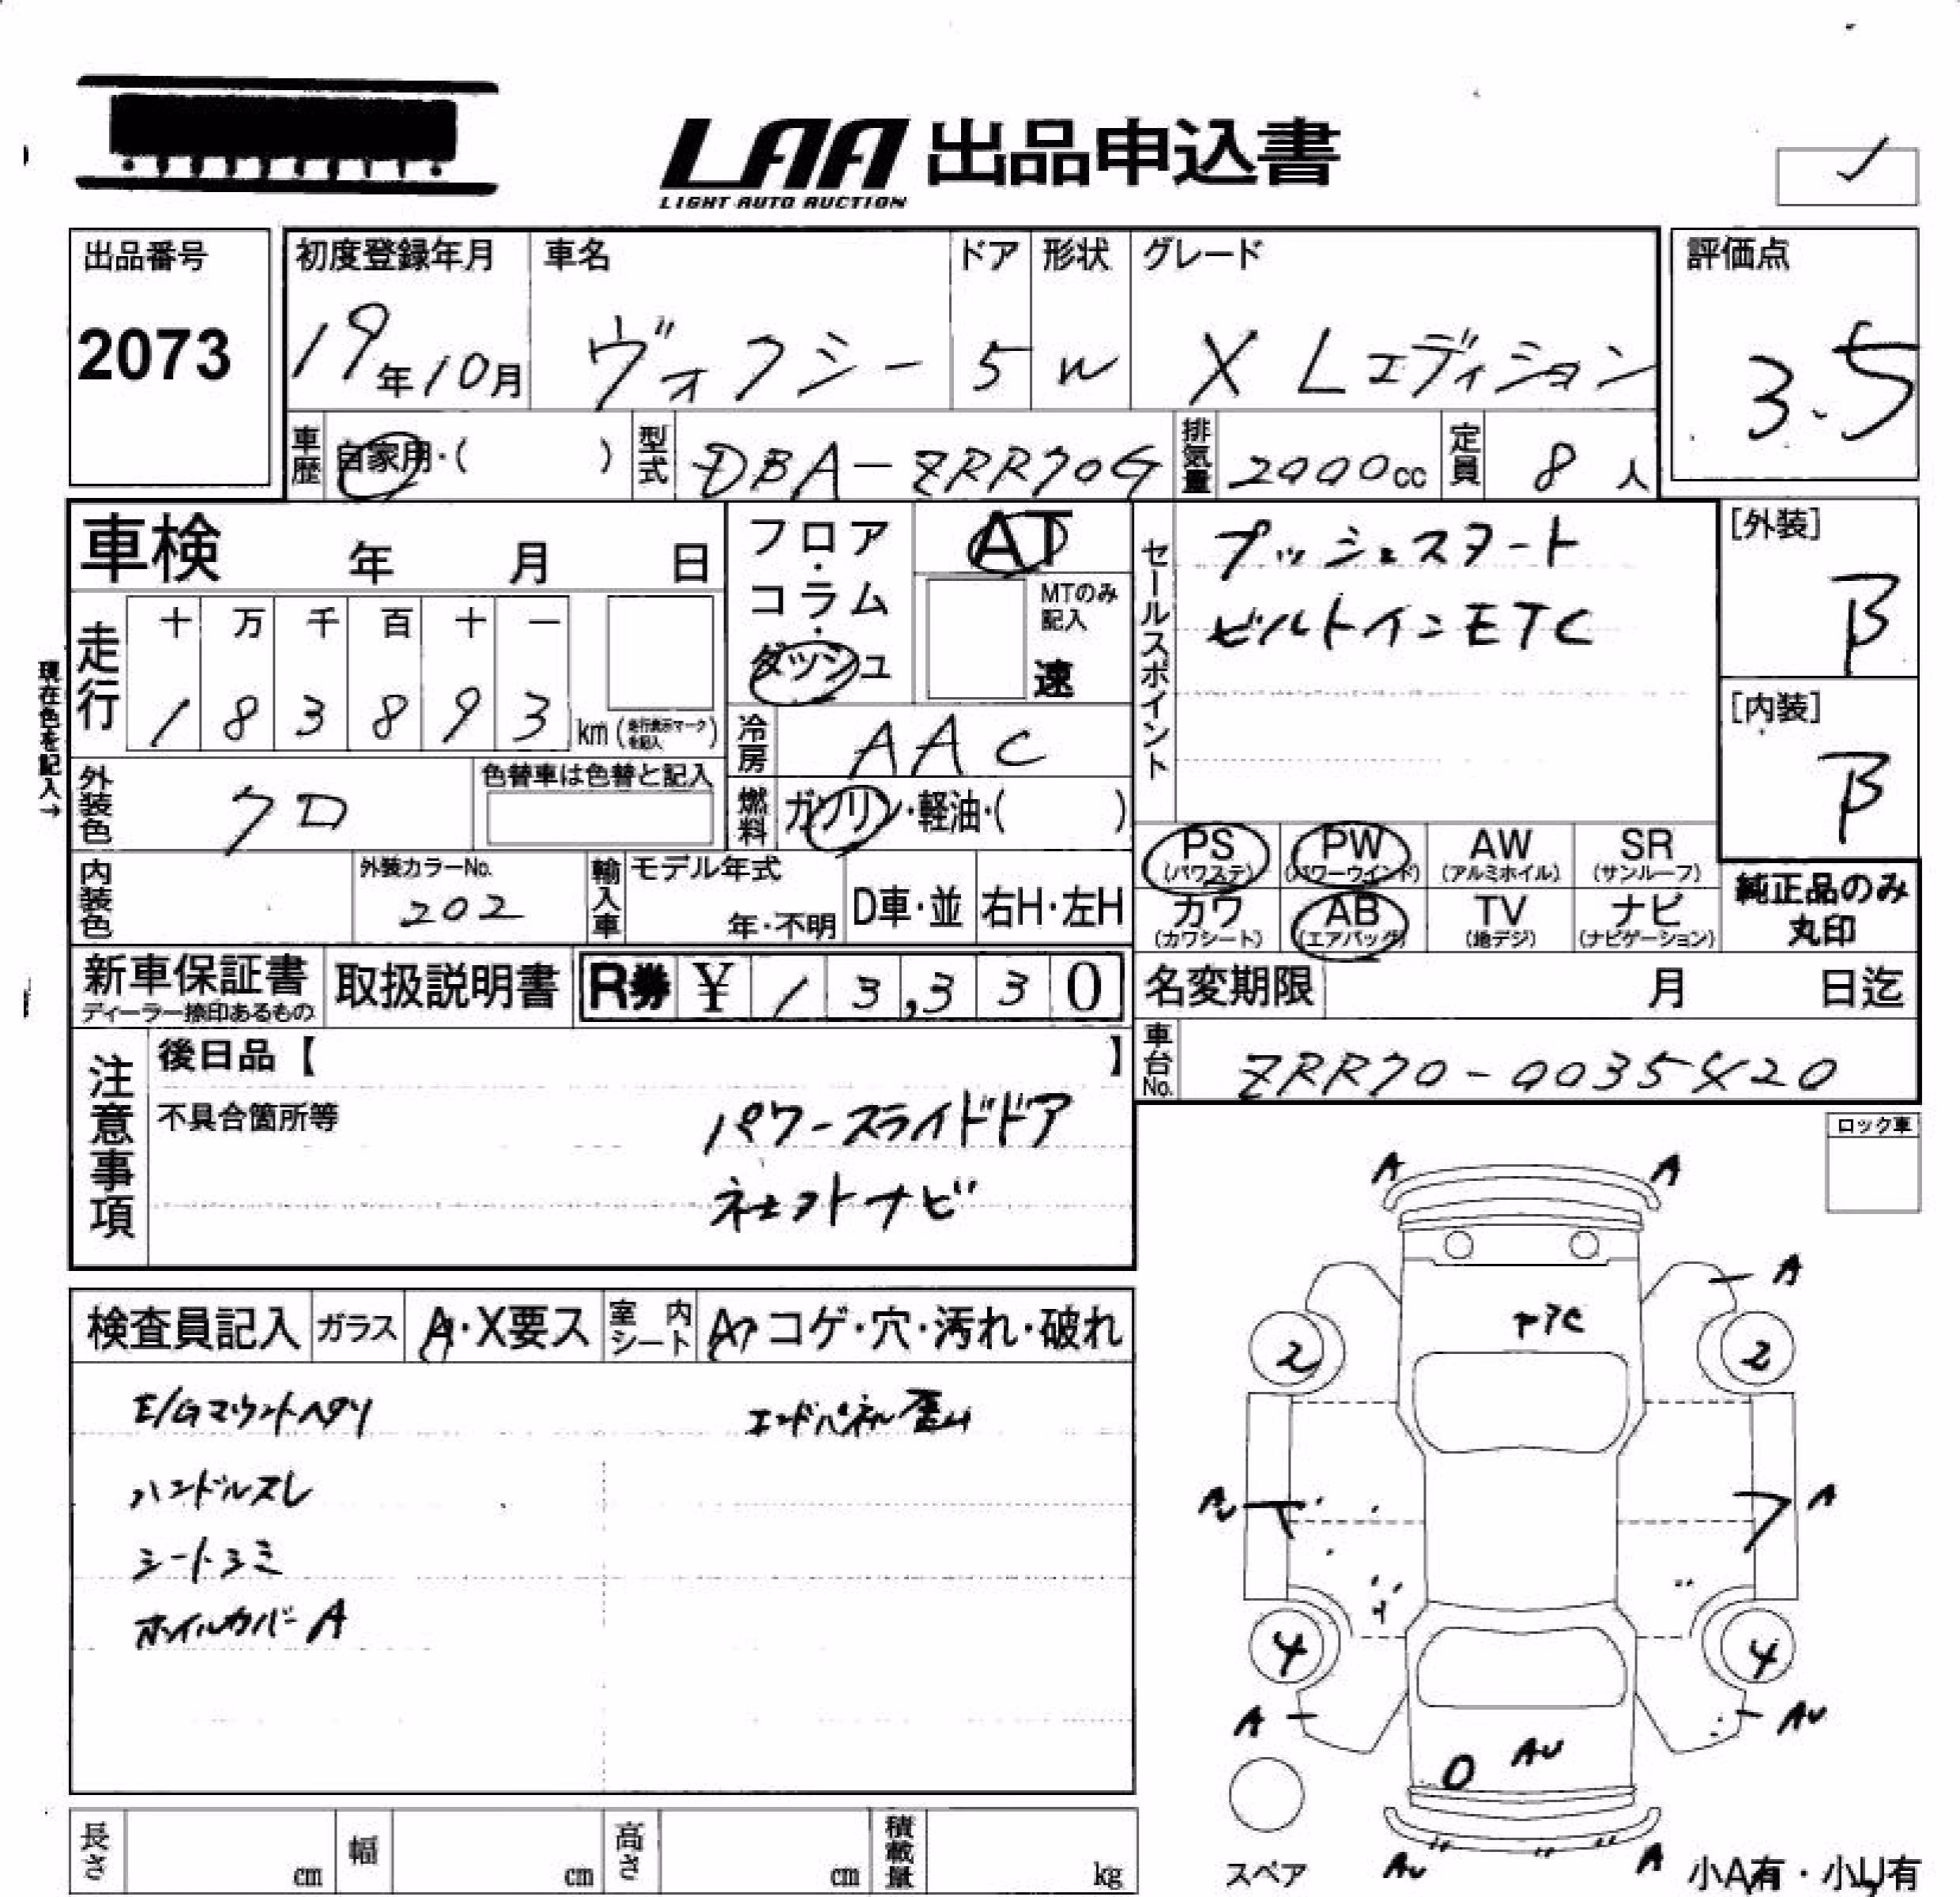 LAA 出品申込書
LIGHT AUTO AUCTION
出品番号
2073
初度登録年月
19年10月
車名
ヴォクシー
ドア
5
形状
W
グレード
X Lエディション
評価点
3.5
車歴
自家用・( )
型式
DBA-ZRR70G
排気量
2000cc
定員
8人
車検 年 月 日
走行
十 万 千 百 十 一
1 8 3 8 9 3 km(走行表示マークを記入)
現在色を記入→
外装色
クロ
色替車は色替と記入
内装色
外装カラーNo.
202
フロア・コラム・ダッシュ
AT
MTのみ記入
速
冷房
AAC
燃料
ガソリン・軽油・( )
輸入車
モデル年式
年・不明
D車・並
右H・左H
セールスポイント
プッシュスタート
ビルトインETC
[外装]
B
[内装]
B
PS (パワステ)
PW (パワーウインド)
AW (アルミホイル)
SR (サンルーフ)
カワ (カワシート)
AB (エアバッグ)
TV (地デジ)
ナビ (ナビゲーション)
純正品のみ
丸印
新車保証書
ディーラー捺印あるもの
取扱説明書
R券 ¥13,330
名変期限 月 日迄
車台No.
ZRR70-0035420
注意事項
後日品【 】
不具合箇所等
パワースライドドア
社外ナビ
ロック車
検査員記入
ガラス
A・X要ス
室内シート
コゲ・穴・汚れ・破れ
E/Gマウントヘタリ
エンドパネル歪ム
ハンドルスレ
シートシミ
ホイルカバーA
A A
A
2 2
A
4 4
A AU
AU
AU A
スペア
小A有・小U有
長さ cm
幅 cm
高さ cm
積載量 kg